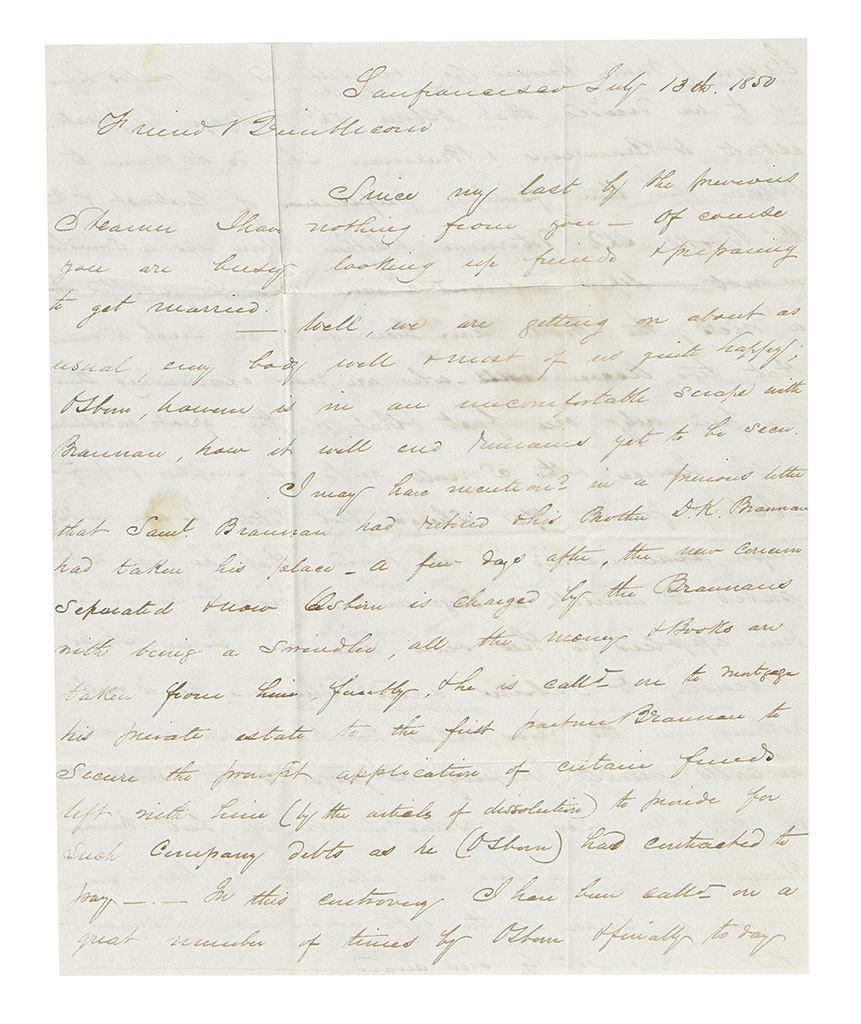 Sanfrancisco July 13th. 1850
Friend
Since my last by the previous
Steamer I have nothing from you — Of course
you are busy looking up friends & preparing
to get married.
— Well, we are getting on about as
usual, evry body well & most of us quite happy;
Osborn, however is in an uncomfortable scrape with
Brannan, how it will end remains yet to be seen.
I may have mention'd in a previous letter
that Saml. Brannan had retired & his Brother D. K. Brannan
had taken his place — a few days after, the new concern
Seperated & now Osborn is charged by the Brannans
with being a Swindler, all the money & Books are
taken from him, , & he is calld on to mortgage
his private estate to the first partner Brannan to
Secure the prompt application of certain funds
left with him (by the articles of dissolution) to provide for
such Company debts as he (Osborn) had contracted to
pay — . — In this controversy I have been calld on a
great number of times by Osborn & finally to day